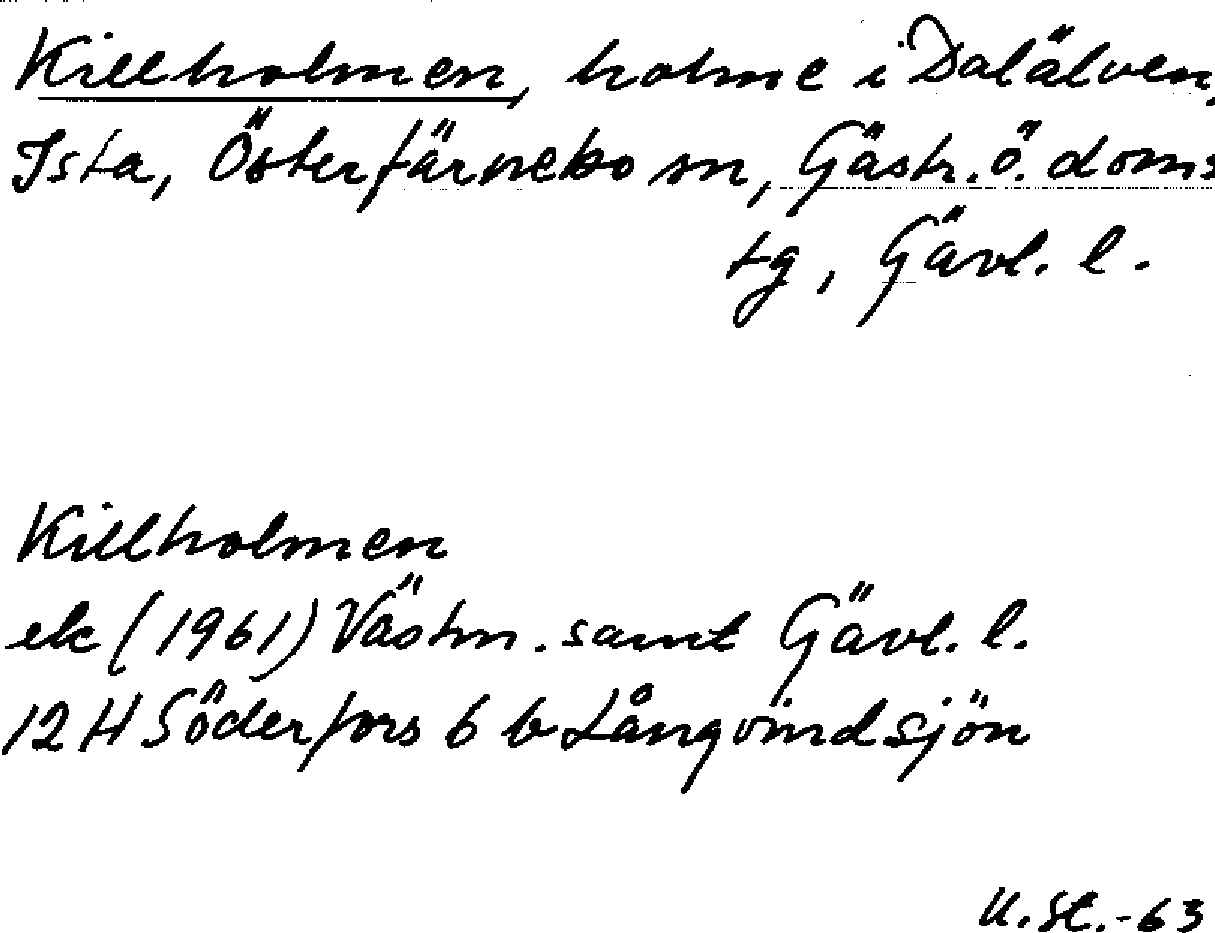 Killholmen, holme i Dalälven,
Ista, Österfärnebo sn, Gästr. ö. doms
tg, Gävl. l.
Killholmen
ek (1961) Västm. samt Gävl. l.
12 H Söderfors 6 b Långvindsjön
-63